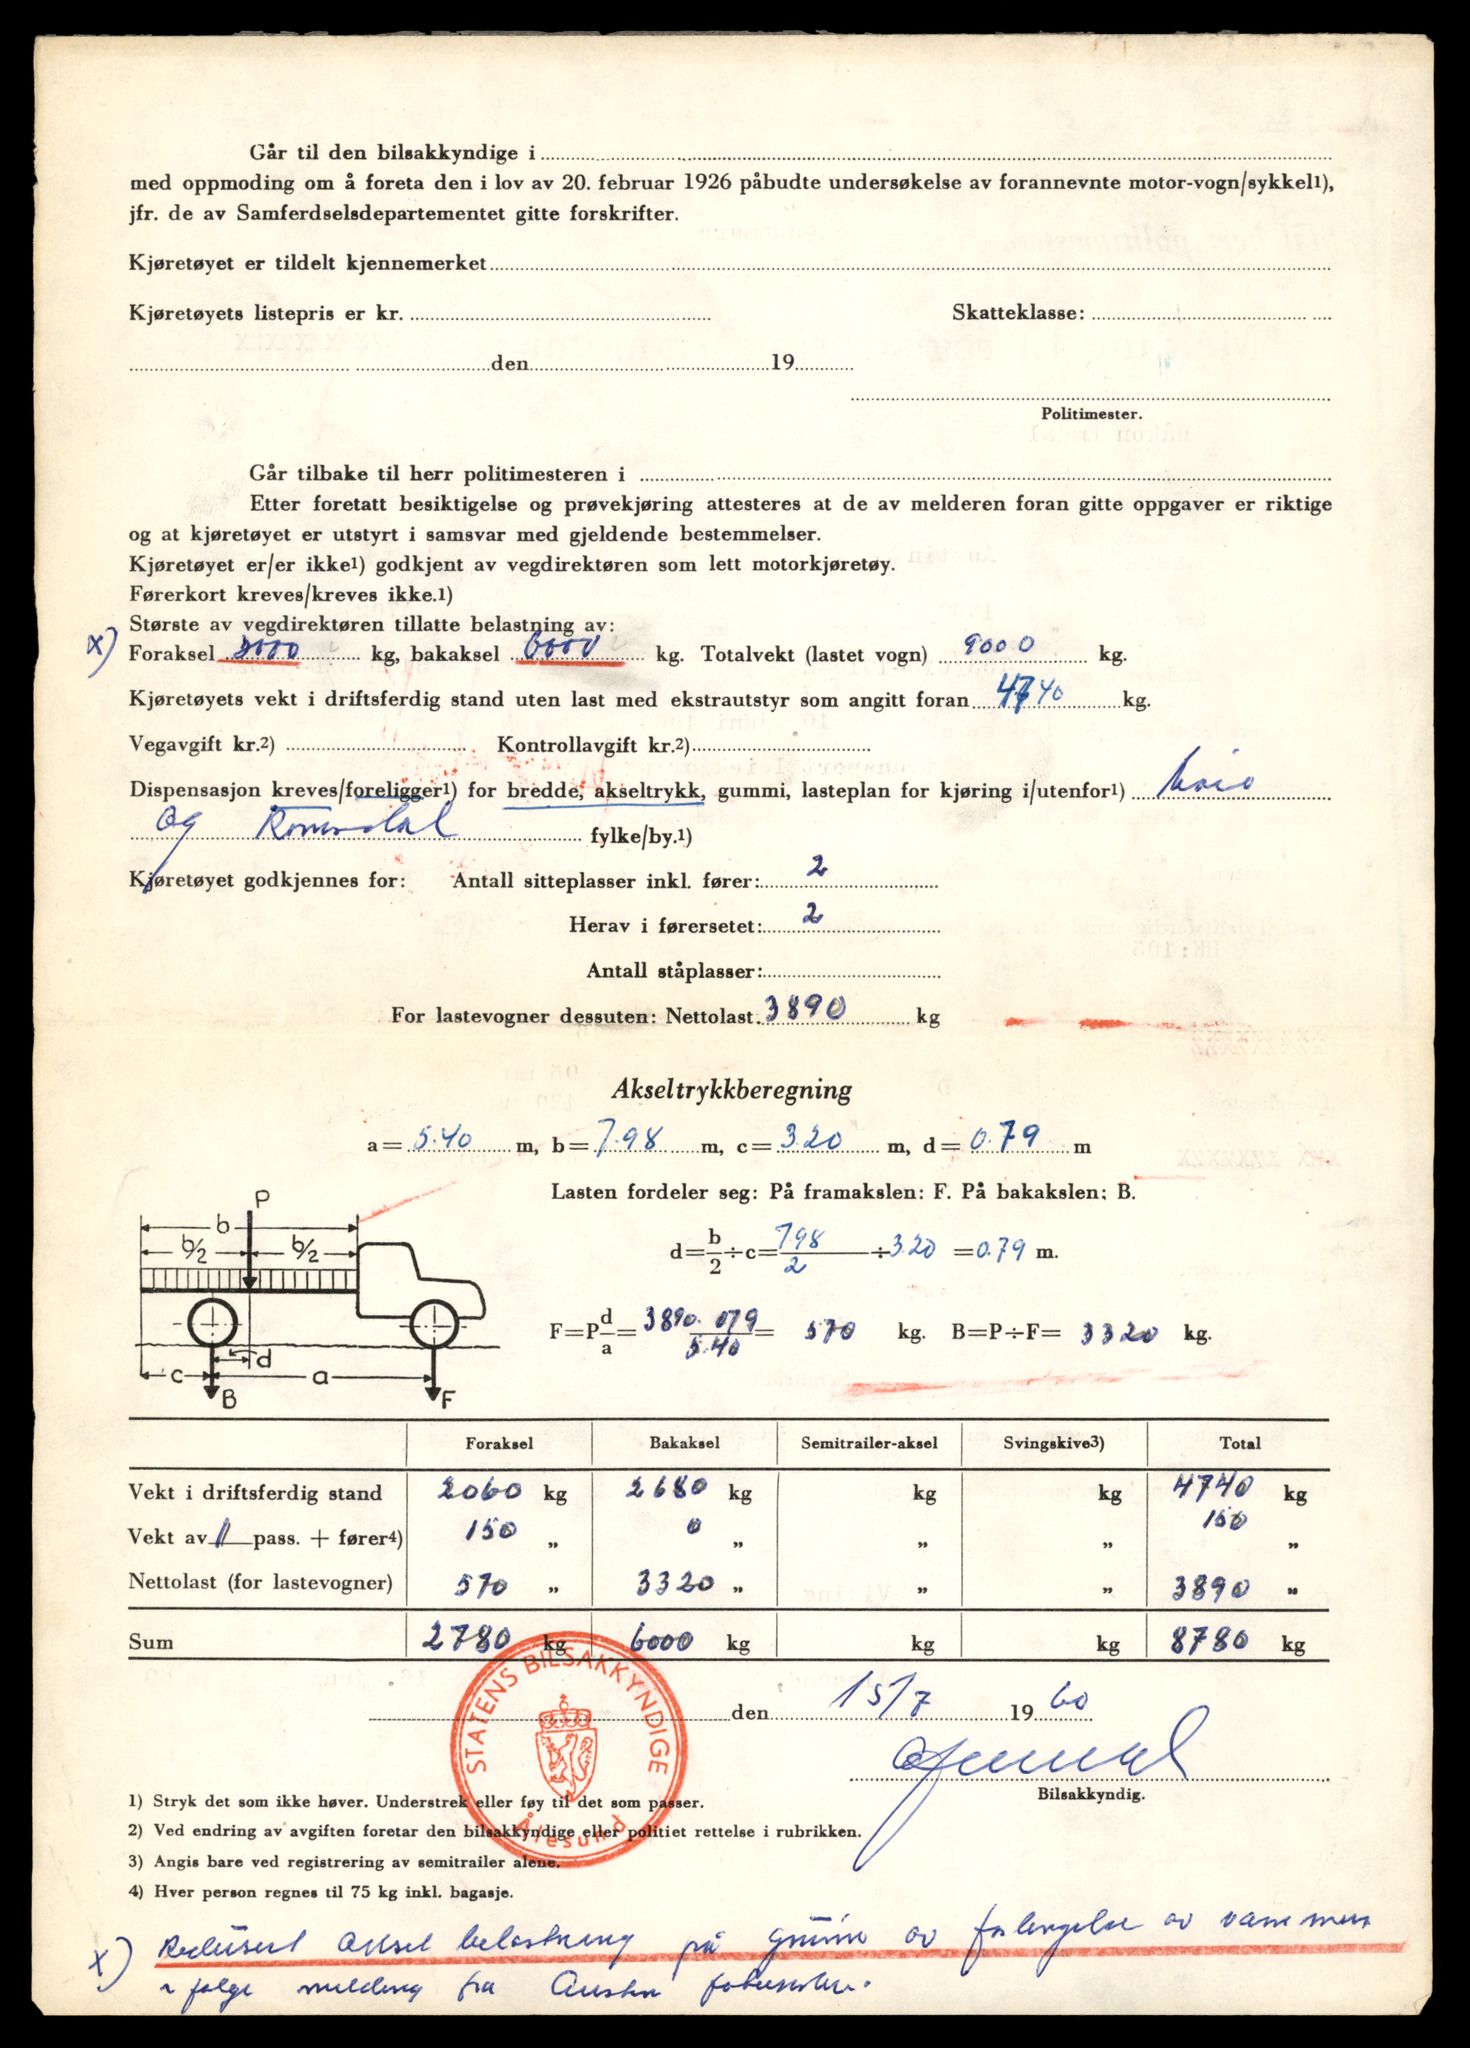 Går til den bilsakkyndige i
med oppmoding om å foreta den i lov av 20. februar 1926 påbudte undersøkelse av forannevnte motor-vogn/sykkel1),
jfr. de av Samferdselsdepartementet gitte forskrifter.
Kjøretøyet er tildelt kjennemerket
Kjøretøyets listepris er kr. Skatteklasse:
den 19
Politimester.
Går tilbake til herr politimesteren i
Etter foretatt besiktigelse og prøvekjøring attesteres at de av melderen foran gitte oppgaver er riktige
og at kjøretøyet er utstyrt i samsvar med gjeldende bestemmelser.
Kjøretøyet er/er ikke1) godkjent av vegdirektøren som lett motorkjøretøy.
Førerkort kreves/kreves ikke.1)
Største av vegdirektøren tillatte belastning av:
x) Foraksel 3000 kg, bakaksel 6000 kg. Totalvekt (lastet vogn) 9000 kg.
Kjøretøyets vekt i driftsferdig stand uten last med ekstrautstyr som angitt foran 4740 kg.
Vegavgift kr.2) Kontrollavgift kr.2)
Dispensasjon kreves/foreligger1) for bredde, akseltrykk, gummi, lasteplan for kjøring i/utenfor1)
og Romsdal fylke/by.1)
Kjøretøyet godkjennes for: Antall sitteplasser inkl. fører: 2
Herav i førersetet: 2
Antall ståplasser:
For lastevogner dessuten: Nettolast 3890 kg
Akseltrykkberegning
a= 5.40 m, b= 7.98 m, c= 3.20 m, d= 0.79 m
Lasten fordeler seg: På framakslen: F. På bakakslen: B.
d=b/2÷c= 7.98/2 ÷ 3.20 = 0.79 m.
F=Pd/a= 3890. 079/5.40 = 570 kg. B=P÷F= 3320 kg.
P
b
b/2 b/2
d
c a
B F
Foraksel Bakaksel Semitrailer-aksel Svingskive3) Total
Vekt i driftsferdig stand 2060 kg 2680 kg kg kg 4740 kg
Vekt av 1 pass. + fører4) 150 „ 0 „ „ „ 150 „
Nettolast (for lastevogner) 570 „ 3320 „ „ „ 3890 „
Sum 2780 kg 6000 kg kg kg 8780 kg
den 15/7 19 60
STATENS BILSAKKYNDIGE
Ålesund
Bilsakkyndig.
1) Stryk det som ikke høver. Understrek eller føy til det som passer.
2) Ved endring av avgiften foretar den bilsakkyndige eller politiet rettelse i rubrikken.
3) Angis bare ved registrering av semitrailer alene.
4) Hver person regnes til 75 kg inkl. bagasje.
x) Redusert aksel belastning på grunn av forlengelse av rammen
i følge melding fra